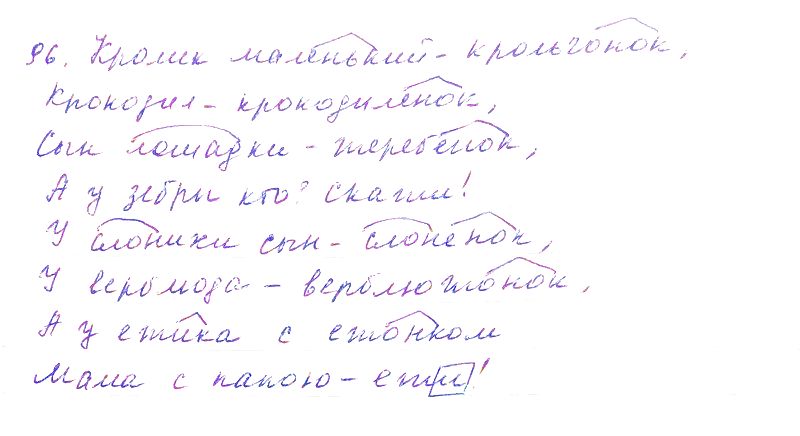 96. Кролик маленький - крольчонок,
Крокодил - крокодилёнок,
Сын лошадки - жеребёнок,
А у зебры кто? Скажи!
У слонихи сын - слонёнок,
У верблюда - верблюжонок,
А у ежика с ежонком
Мама с папою - ежи!